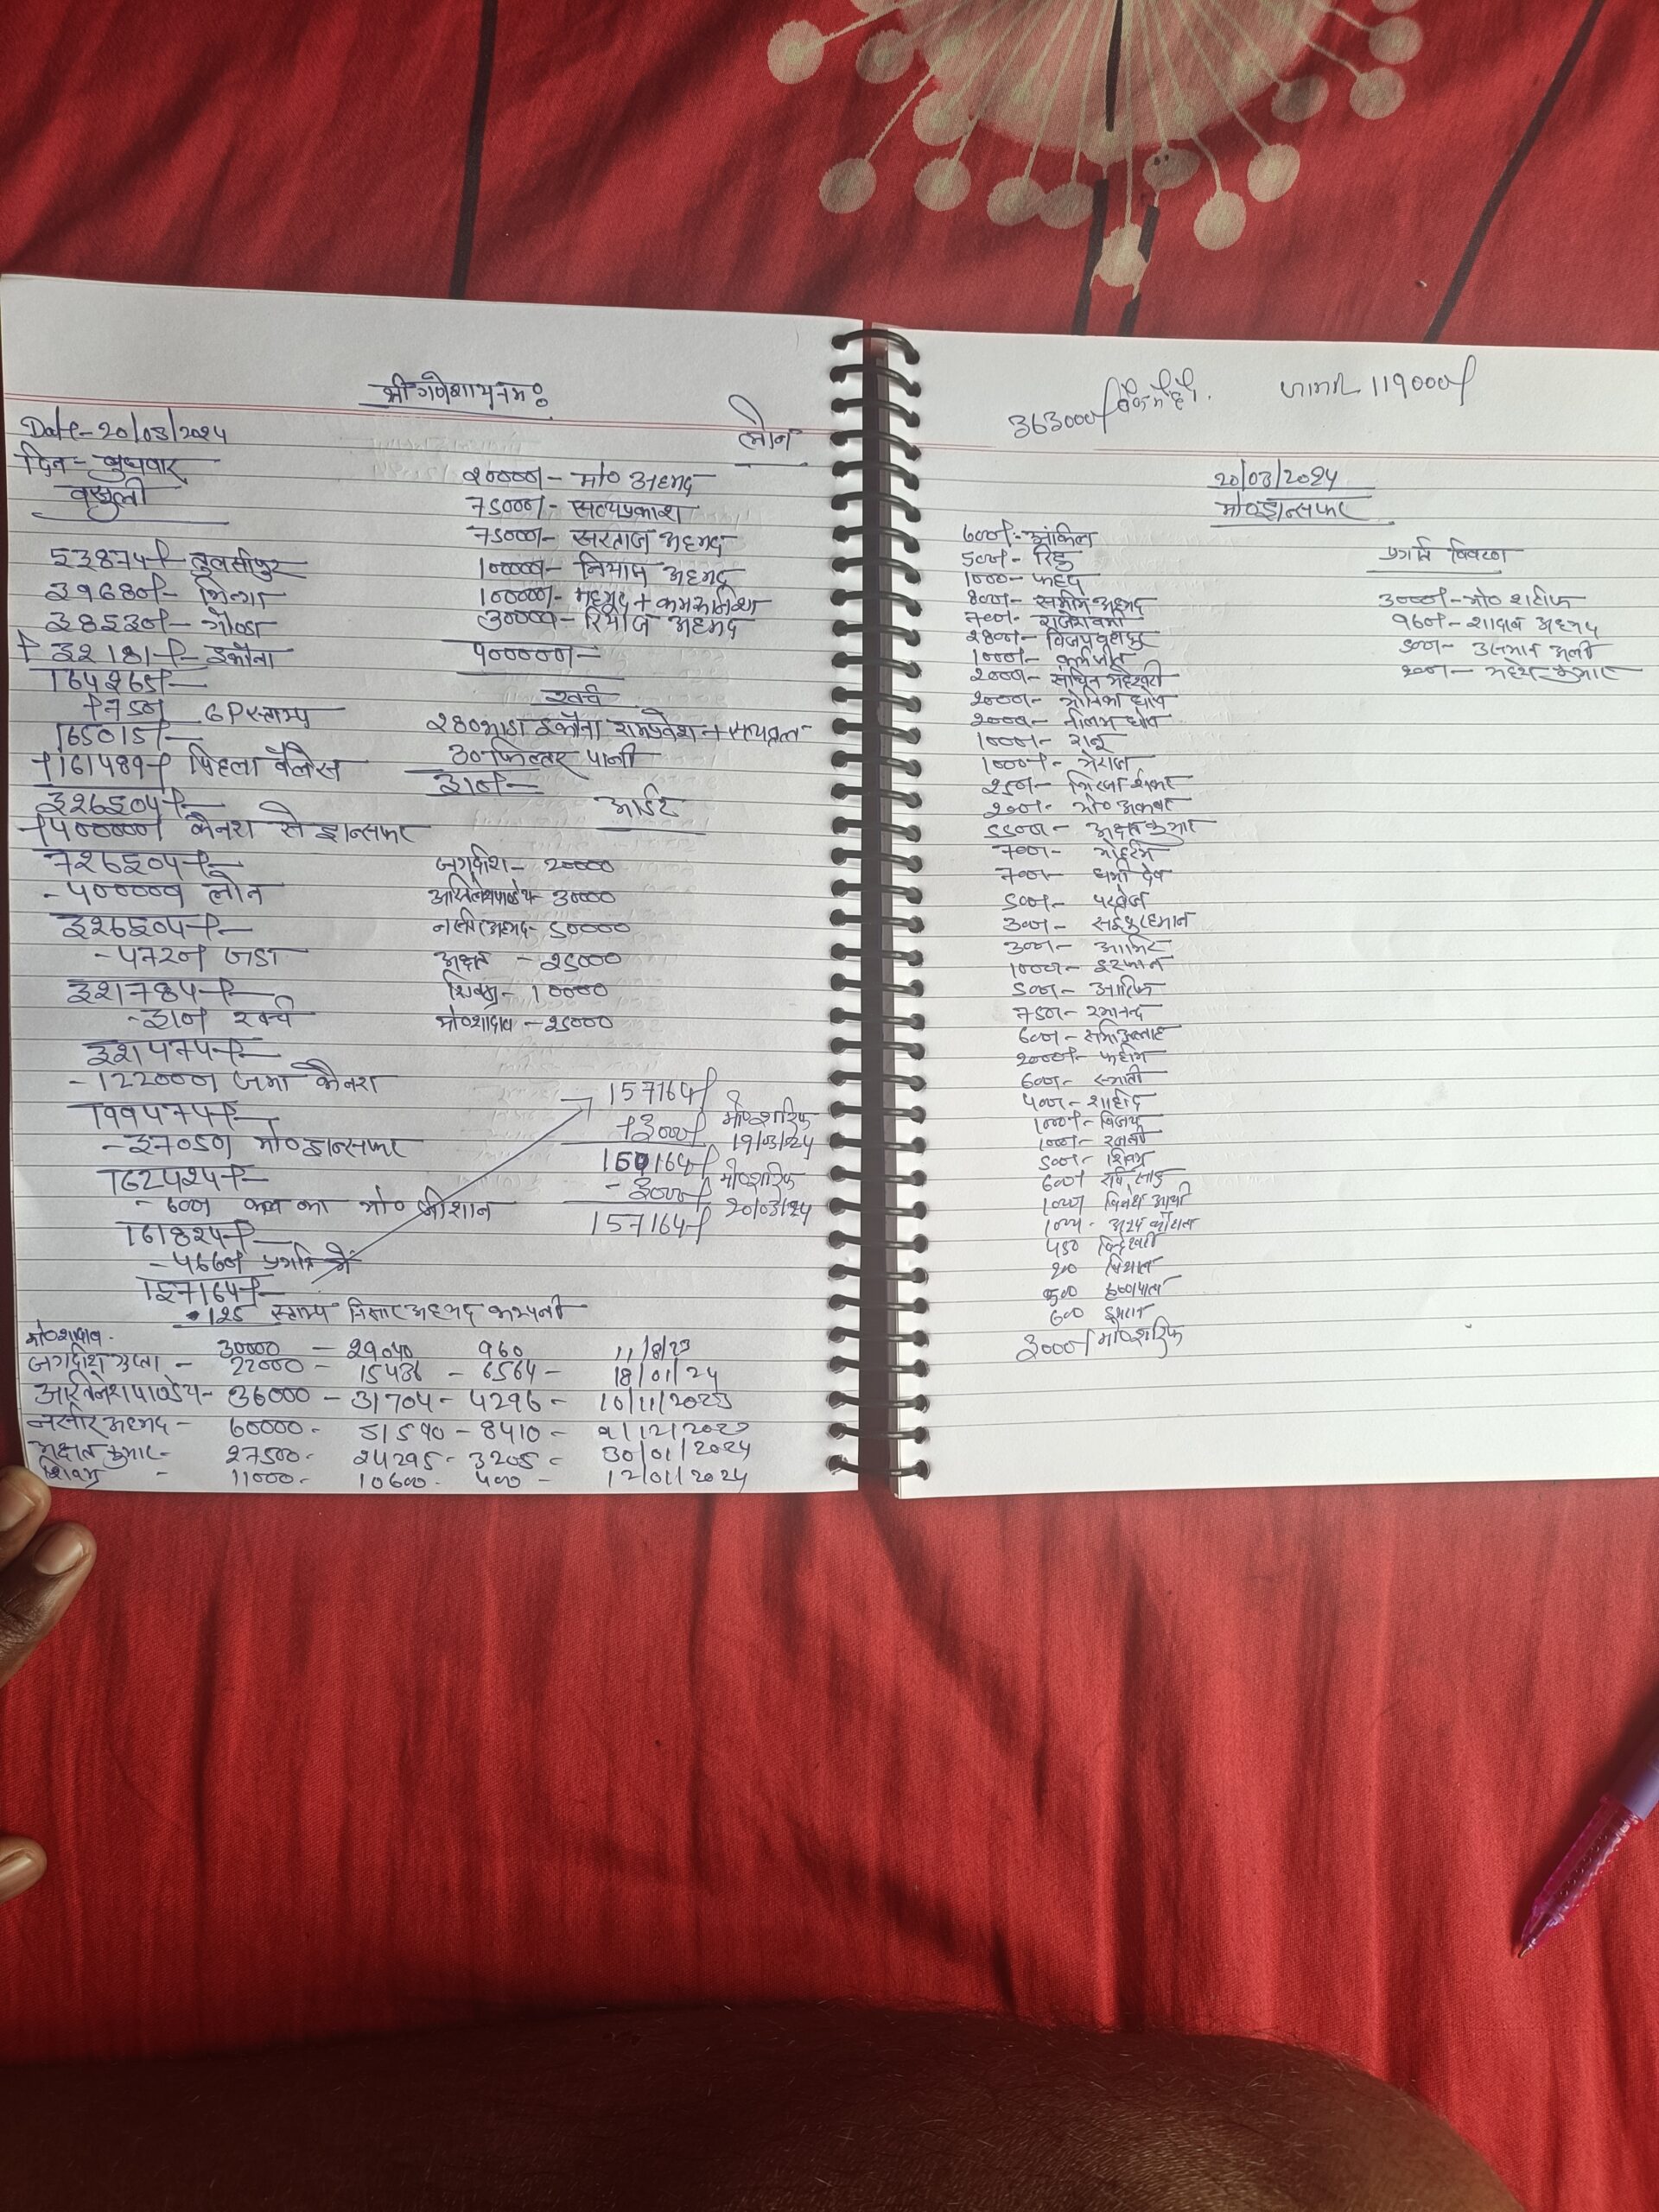 श्री गणेशाय नमः
Date- 20/03/2024
दिन- बुधवार
वसूली
53874/- तुलसीपुर
39680/- भिनगा
38530/- गोण्डा
+ 32181/- इकौना
164265/-
+750/- GP स्टाम्प
165015/-
+161489/- पिछला बैलेंस
326504/-
+400000/- कैनरा से ट्रान्सफर
726504/-
- 400000 लोन
326504/-
- 4720/- जडा
321784/-
- 310/- खर्च
321474/-
- 122000/- जमा कैनरा
199474/-
- 37050/- मो० ट्रान्सफर
162424/-
- 600/- कल का मो० जीशान
161824/-
- 4660/- प्रगति में
157164/-
125 स्टाम्प निसार अहमद कम्पनी
लोन
200000/- मो० अहमद
75000/- सत्यप्रकाश
75000/- सरताज अहमद
100000/- नियाज अहमद
100000/- महमूद +
30000/- रियाज अहमद
400000/-
खर्च
280 भाडा इकौना रामप्रवेश + सत्यव्रत
30 फिल्टर पानी
310/-
आर्डर
जगदीश - 20000
अखिलेश पाण्डेय - 30000
नसीर अहमद - 50000
अक्षत - 25000
शिवम - 10000
मो० शादाब - 25000
157164/-
+3000/- मो० शरिफ 19/03/24
160164/-
- 3000/- मो० शरिफ 20/03/24
157164/-
मो० शादाब - 30000 - 29040 960 11/8/23
जगदीश गुप्ता - 22000 - 15436 - 6564 - 18/01/24
अखिलेश पाण्डेय - 36000 - 31704 - 4296 - 10/11/2023
नसीर अहमद - 60000 - 51590 - 8410 - 9/12/2023
अक्षत कुमार - 27500 - 24295 - 3205 - 30/01/2024
शिवम - 11000 - 10600 - 400 - 12/01/2024
363000/- बैंक में है।
119000/-
20/03/2024
मो० ट्रान्सफर
600/- अंकित
500/- रिंकू
1000- फहद
800/- समीम अहमद
700/- राजेश वर्मा
2800/- विजय बहादुर
1000/-
2000/- सचिन महेश्वरी
2000/- मोनिका घोष
2000- नीलम घोष
1000/- राजू
1000/- मेराज
250/- गिरजा शंकर
200/- मो० अकबर
5500/- अक्षत कुमार
700/- मोहर्रम
700/- धर्म देव
500/- परवेज
300/- सईदुरहमान
300/- आमिर
1000/- इरफान
500/- आतिफ
750/- रमानन्द
600/- समिउल्लाह
2000/- फहीम
600/- स्वाती
400/- शाहीद
1000/- विजय
1000/- रजनी
500/- शिवम
600/-
1000/-
1000/-
450 विन्देश्वरी
200 विशाल
500 कृष्णपाल
600 इमरान
3000/- मो० शरिफ
प्रगति विवरण
3000/- मो० शरीफ
960/- शादाब अहमद
500/- उसमान अली
200/- महेश कुमार